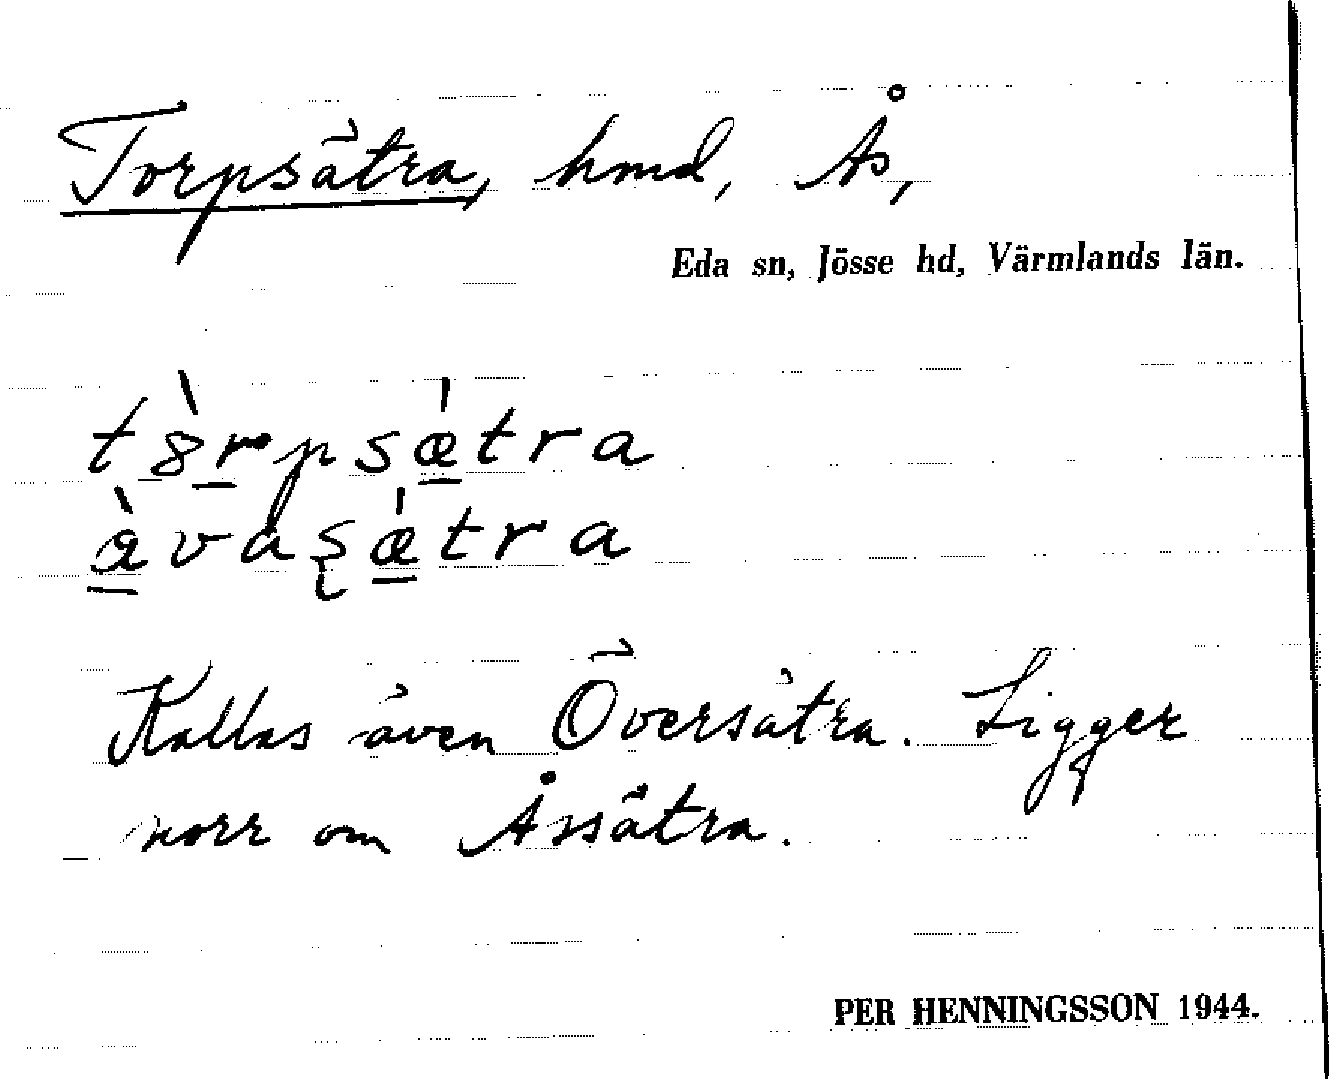 Torpsätra, hmd, Ås,
Eda sn, Jösse hd, Värmlands län.
t8̀rpsæ̍tra
æ̀vaʂæ̍tra
Kallas även Översätra. Ligger
norr om Åssätra.
PER HENNINGSSON 1944.